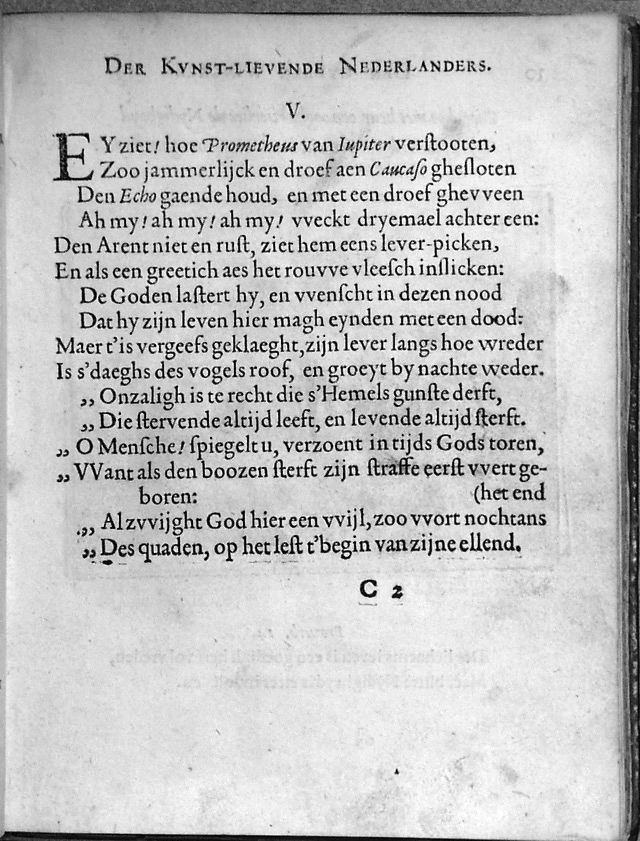 DER KVNST-LIEVENDE NEDERLANDERS.
V.
EY ziet! hoe Prometheus van Iupiter verstooten,
Zoo jammerlijck en droef aen Caucaso ghesloten
Den Echo gaende houd, en met een droef ghevveen
Ah my! ah my! ah my! vveckt dryemael achter een:
Den Arent niet en rust, ziet hem eens lever-picken,
En als een greetich aes het rouvve vleesch inslicken:
De Goden lastert hy, en vvenscht in dezen nood
Dat hy zijn leven hier magh eynden met een dood:
Maer t'is vergeefs geklaeght, zijn lever langs hoe wreder
Is s'daeghs des vogels roof, en groeyt by nachte weder.
,, Onzaligh is te recht die s'Hemels gunste derft,
,, Die stervende altijd leeft, en levende altijd sterft.
,, O Mensche! spiegelt u, verzoent in tijds Gods toren,
,, VVant als den boozen sterft zijn straffe eerst vvert ge-
boren: (het end
,, Al zvvijght God hier een vvijl, zoo vvort nochtans
,, Des quaden, op het lest t'begin van zijne ellend.
C 2